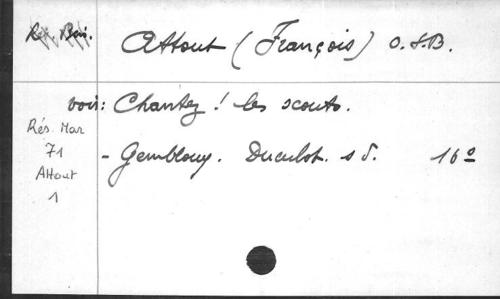 Rés. Boi.
Attout (François) O.S.B.
voir: Chantez ! les scouts.
Rés. Mar
71
Attout
1
- Gembloux. Duculot. s d. 16º